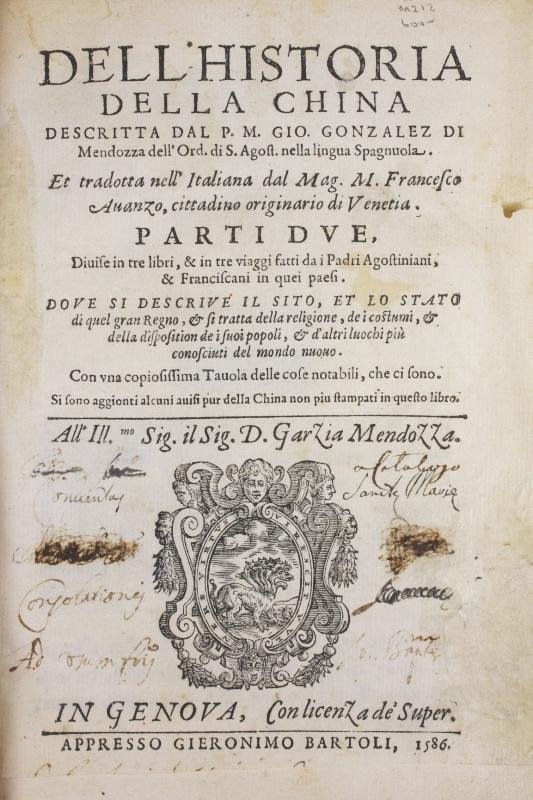 M212
600-
DELL'HISTORIA
DELLA CHINA
DESCRITTA DAL P. M. GIO. GONZALEZ DI
Mendozza dell'Ord. di S. Agost. nella lingua Spagnuola.
Et tradotta nell' Italiana dal Mag. M. Francesco
Auanzo, cittadino originario di Venetia.
PARTI DVE,
Diuise in tre libri, & in tre viaggi fatti da i Padri Agostiniani,
& Franciscani in quei paesi.
DOVE SI DESCRIVE IL SITO, ET LO STATO
di quel gran Regno, & si tratta della religione, de i costumi, &
della disposition de i suoi popoli, & d'altri luochi più
conosciuti del mondo nuouo.
Con vna copiosissima Tauola delle cose notabili, che ci sono.
Si sono aggionti alcuni auisi pur della China non piu stampati in questo libro.
All' Ill.mo Sig. il Sig. D. Garzia Mendozza.
Conuentus
Sanctę Marię
Consolationis
Ad vsum
IN GENOVA, Con licenza de' Super.
APPRESSO GIERONIMO BARTOLI, 1586.